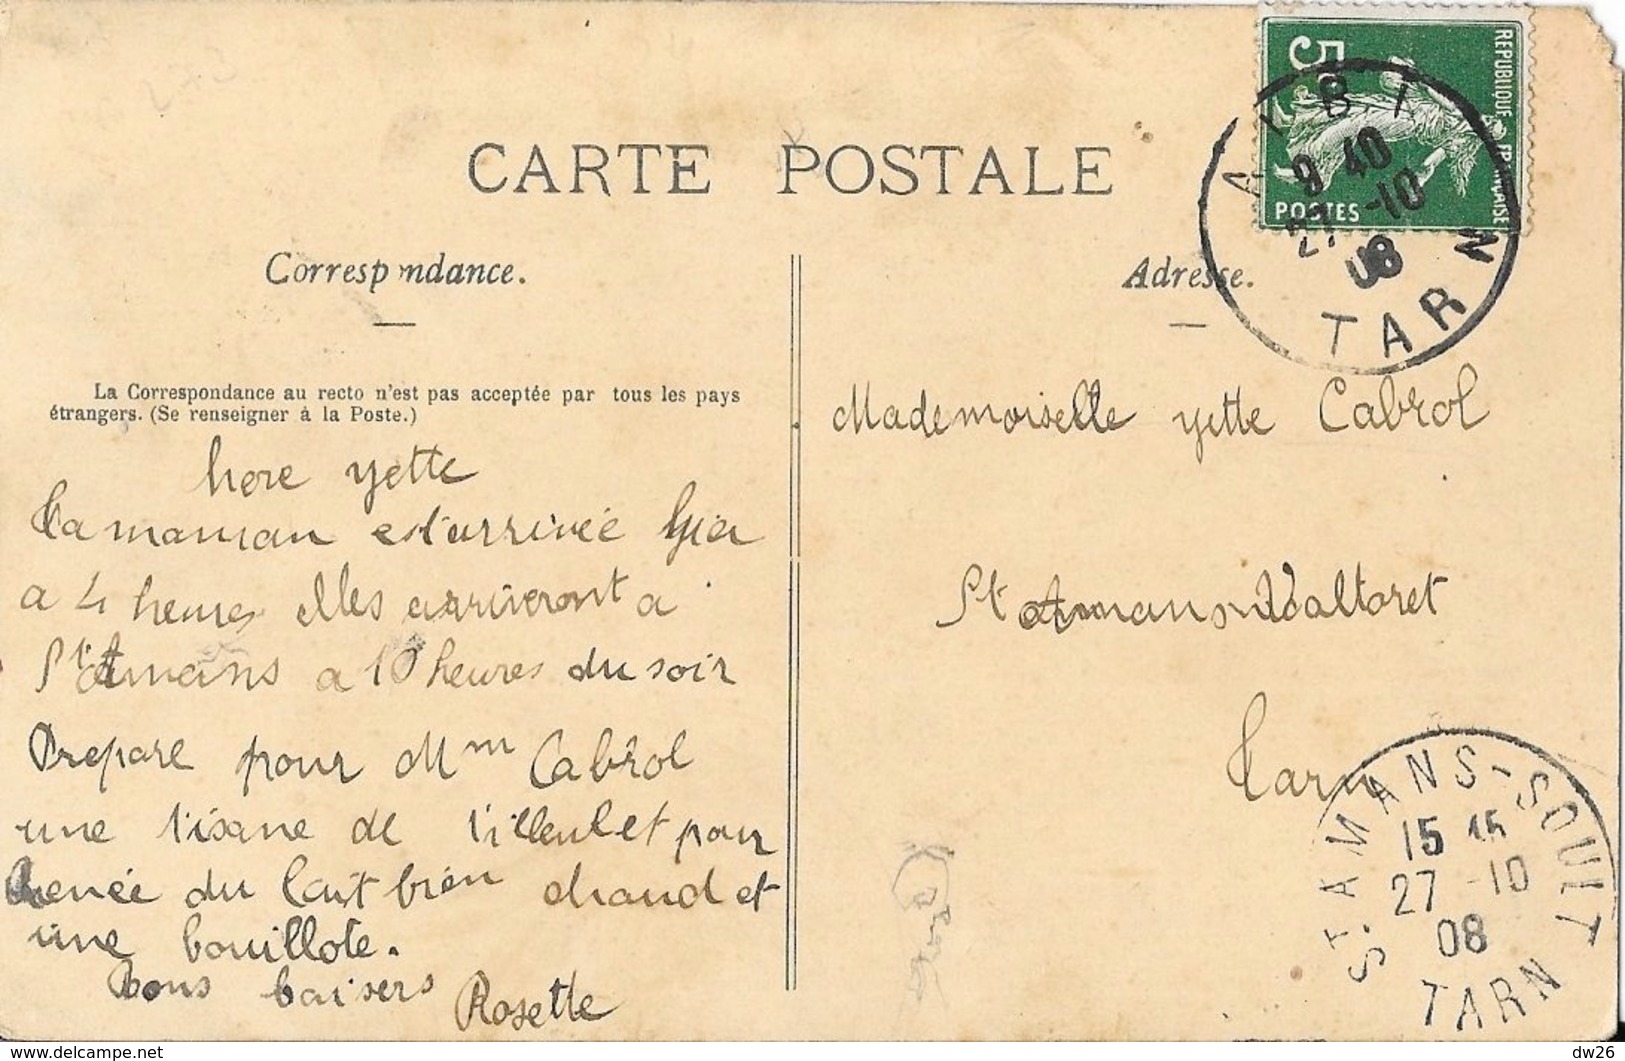 CARTE POSTALE
Correspondance.
La Correspondance au recto n'est pas acceptée par tous les pays
étrangers. (Se renseigner à la Poste.)
here yette
Ta maman est arrivée hier
a 4 heures elles arriveront a
St Amans a 10 heures du soir
Prepare pour Mm Cabrol
une tisane de tilleul et pour
Renée du lait bien chaud et
une bouillote.
Bons baisers Rosette
Adresse.
Mademoiselle yette Cabrol
St Amans Valtoret
Tarn
5
REPUBLIQUE FRANÇAISE
POSTES
ALBI
9 40
27 -10
08
TARN
ST AMANS-SOULT
15 15
27 -10
08
TARN
© delcampe.net
dw26